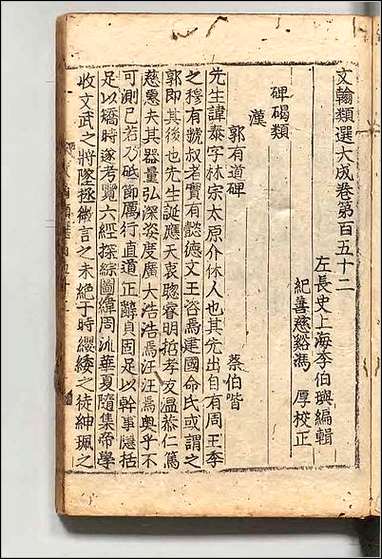 文翰類選大成卷第百五十二
左長史上海李伯璵編輯
紀善慈谿馮　厚校正
碑碣類
漢
郭有道碑
蔡伯喈
先生諱泰字林宗太原介休人也其先出自有周王季
之穆有虢叔者實有懿德文王咨焉建國命氏或謂之
郭即其後也先生誕應天衷聦睿明哲孝友溫恭仁篤
慈惠夫其器量弘深姿度廣大浩浩焉汪汪焉奥乎不
可測已若乃砥節厲行直道正辭貞固足以幹事隱括
足以矯時遂考覽六經探綜圖緯周流華夏隨集帝學
收文武之將墜拯微言之未絶于時纓緌之徒紳珮之